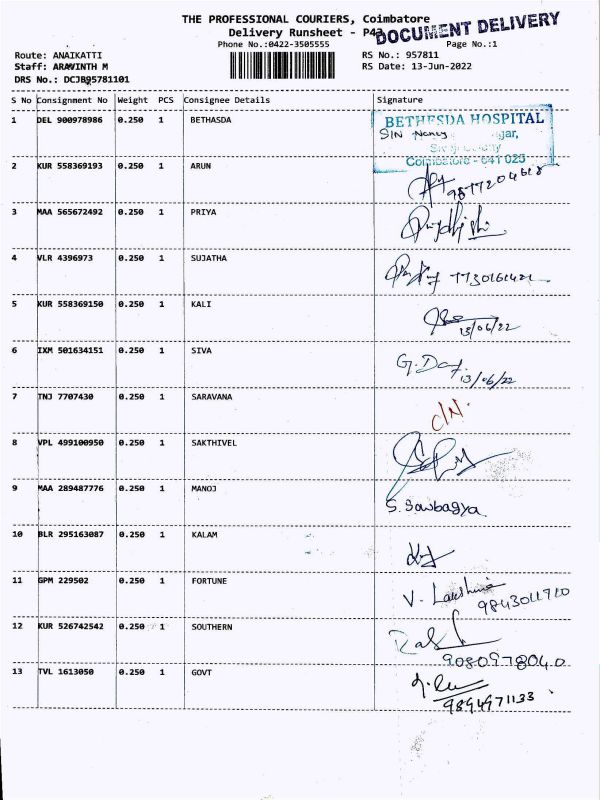 THE PROFESSIONAL COURIERS, Coimbatore
Delivery Runsheet - P42
DOCUMENT DELIVERY
Phone No.:0422-3505555
Page No.:1
Route: ANAIKATTI
RS No.: 957811
Staff: ARAVINTH M
RS Date: 13-Jun-2022
DRS No.: DCJB95781101
S No Consignment No Weight PCS Consignee Details Signature
1 DEL 900978986 0.250 1 BETHASDA
BETHESDA HOSPITAL
SIN Nancy gar,
Coimbatore - 641 025
2 KUR 558369193 0.250 1 ARUN
3 MAA 565672492 0.250 1 PRIYA
4 VLR 4396973 0.250 1 SUJATHA
5 KUR 558369150 0.250 1 KALI
13/06/22
6 IXM 501634151 0.250 1 SIVA
13/06/22
7 TNJ 7707430 0.250 1 SARAVANA
C/N.
8 VPL 499100950 0.250 1 SAKTHIVEL
9 MAA 289487776 0.250 1 MANOJ
S. Sowbagya
10 BLR 295163087 0.250 1 KALAM
11 GPM 229502 0.250 1 FORTUNE
V.
12 KUR 526742542 0.250 1 SOUTHERN
9080978040
13 TVL 1613050 0.250 1 GOVT
9894971133